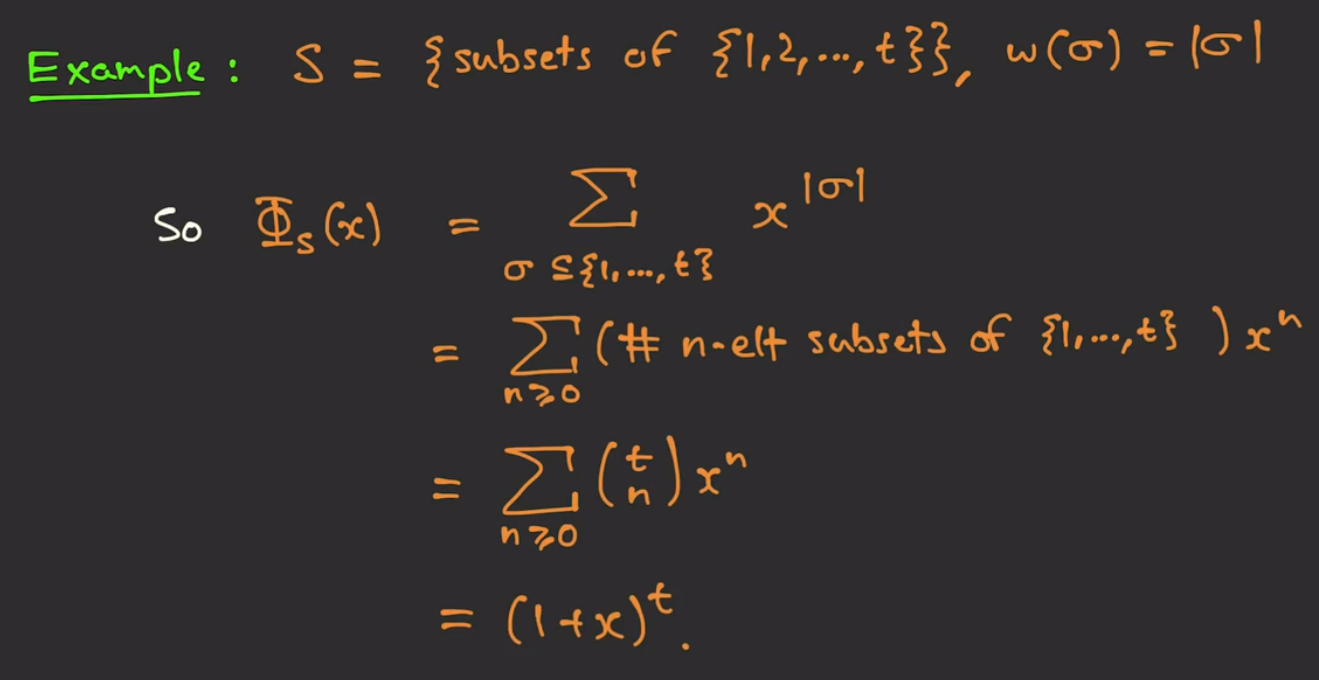 Example: S = {subsets of {1,2,...,t}}, w(σ) = |σ|
So Φ_S(x) = Σ_{σ ⊆ {1,...,t}} x^{|σ|}
= Σ_{n≥0} (# n-elt subsets of {1,...,t}) x^n
= Σ_{n≥0} (t n) x^n
= (1+x)^t.